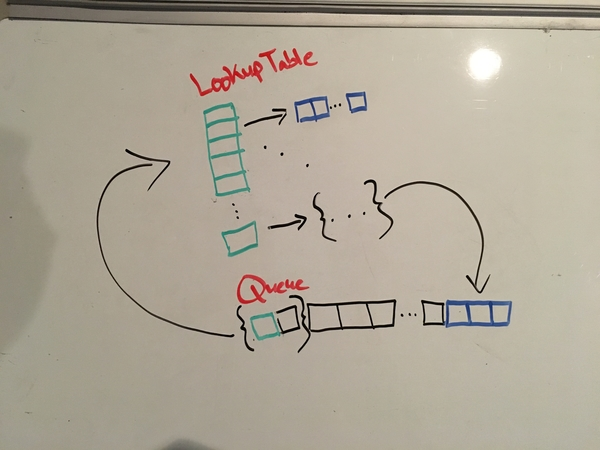 Lookup Table
Queue